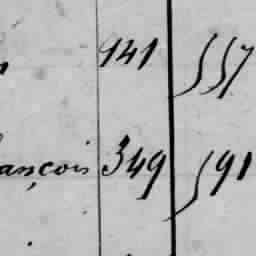 141 557
ançois 349 591